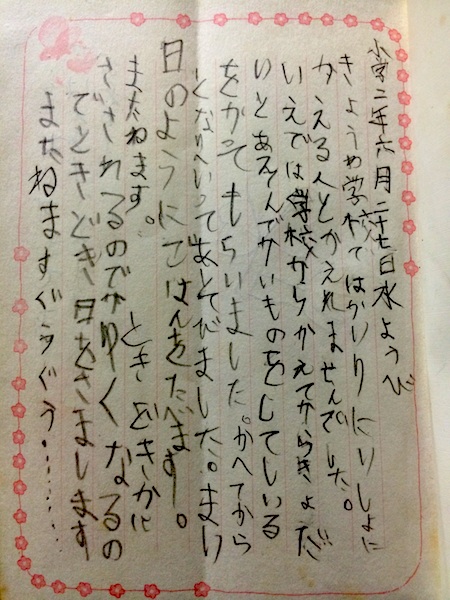 小学二年六月二十七日水ようび
きょうわ学校ではかいりにいしょに
かえる人とかえれませんでした。
いえでは学校からかえてからきょだ
いとあそんでかいものをしている
をかてもらいました。かへてから
となりへいってあとびました。まい
日のようにごはんをたべます。
またねます。ときどきかに
さされてるのでかゆくなるの
でときどき日をさまします
またねますぐうぐう……